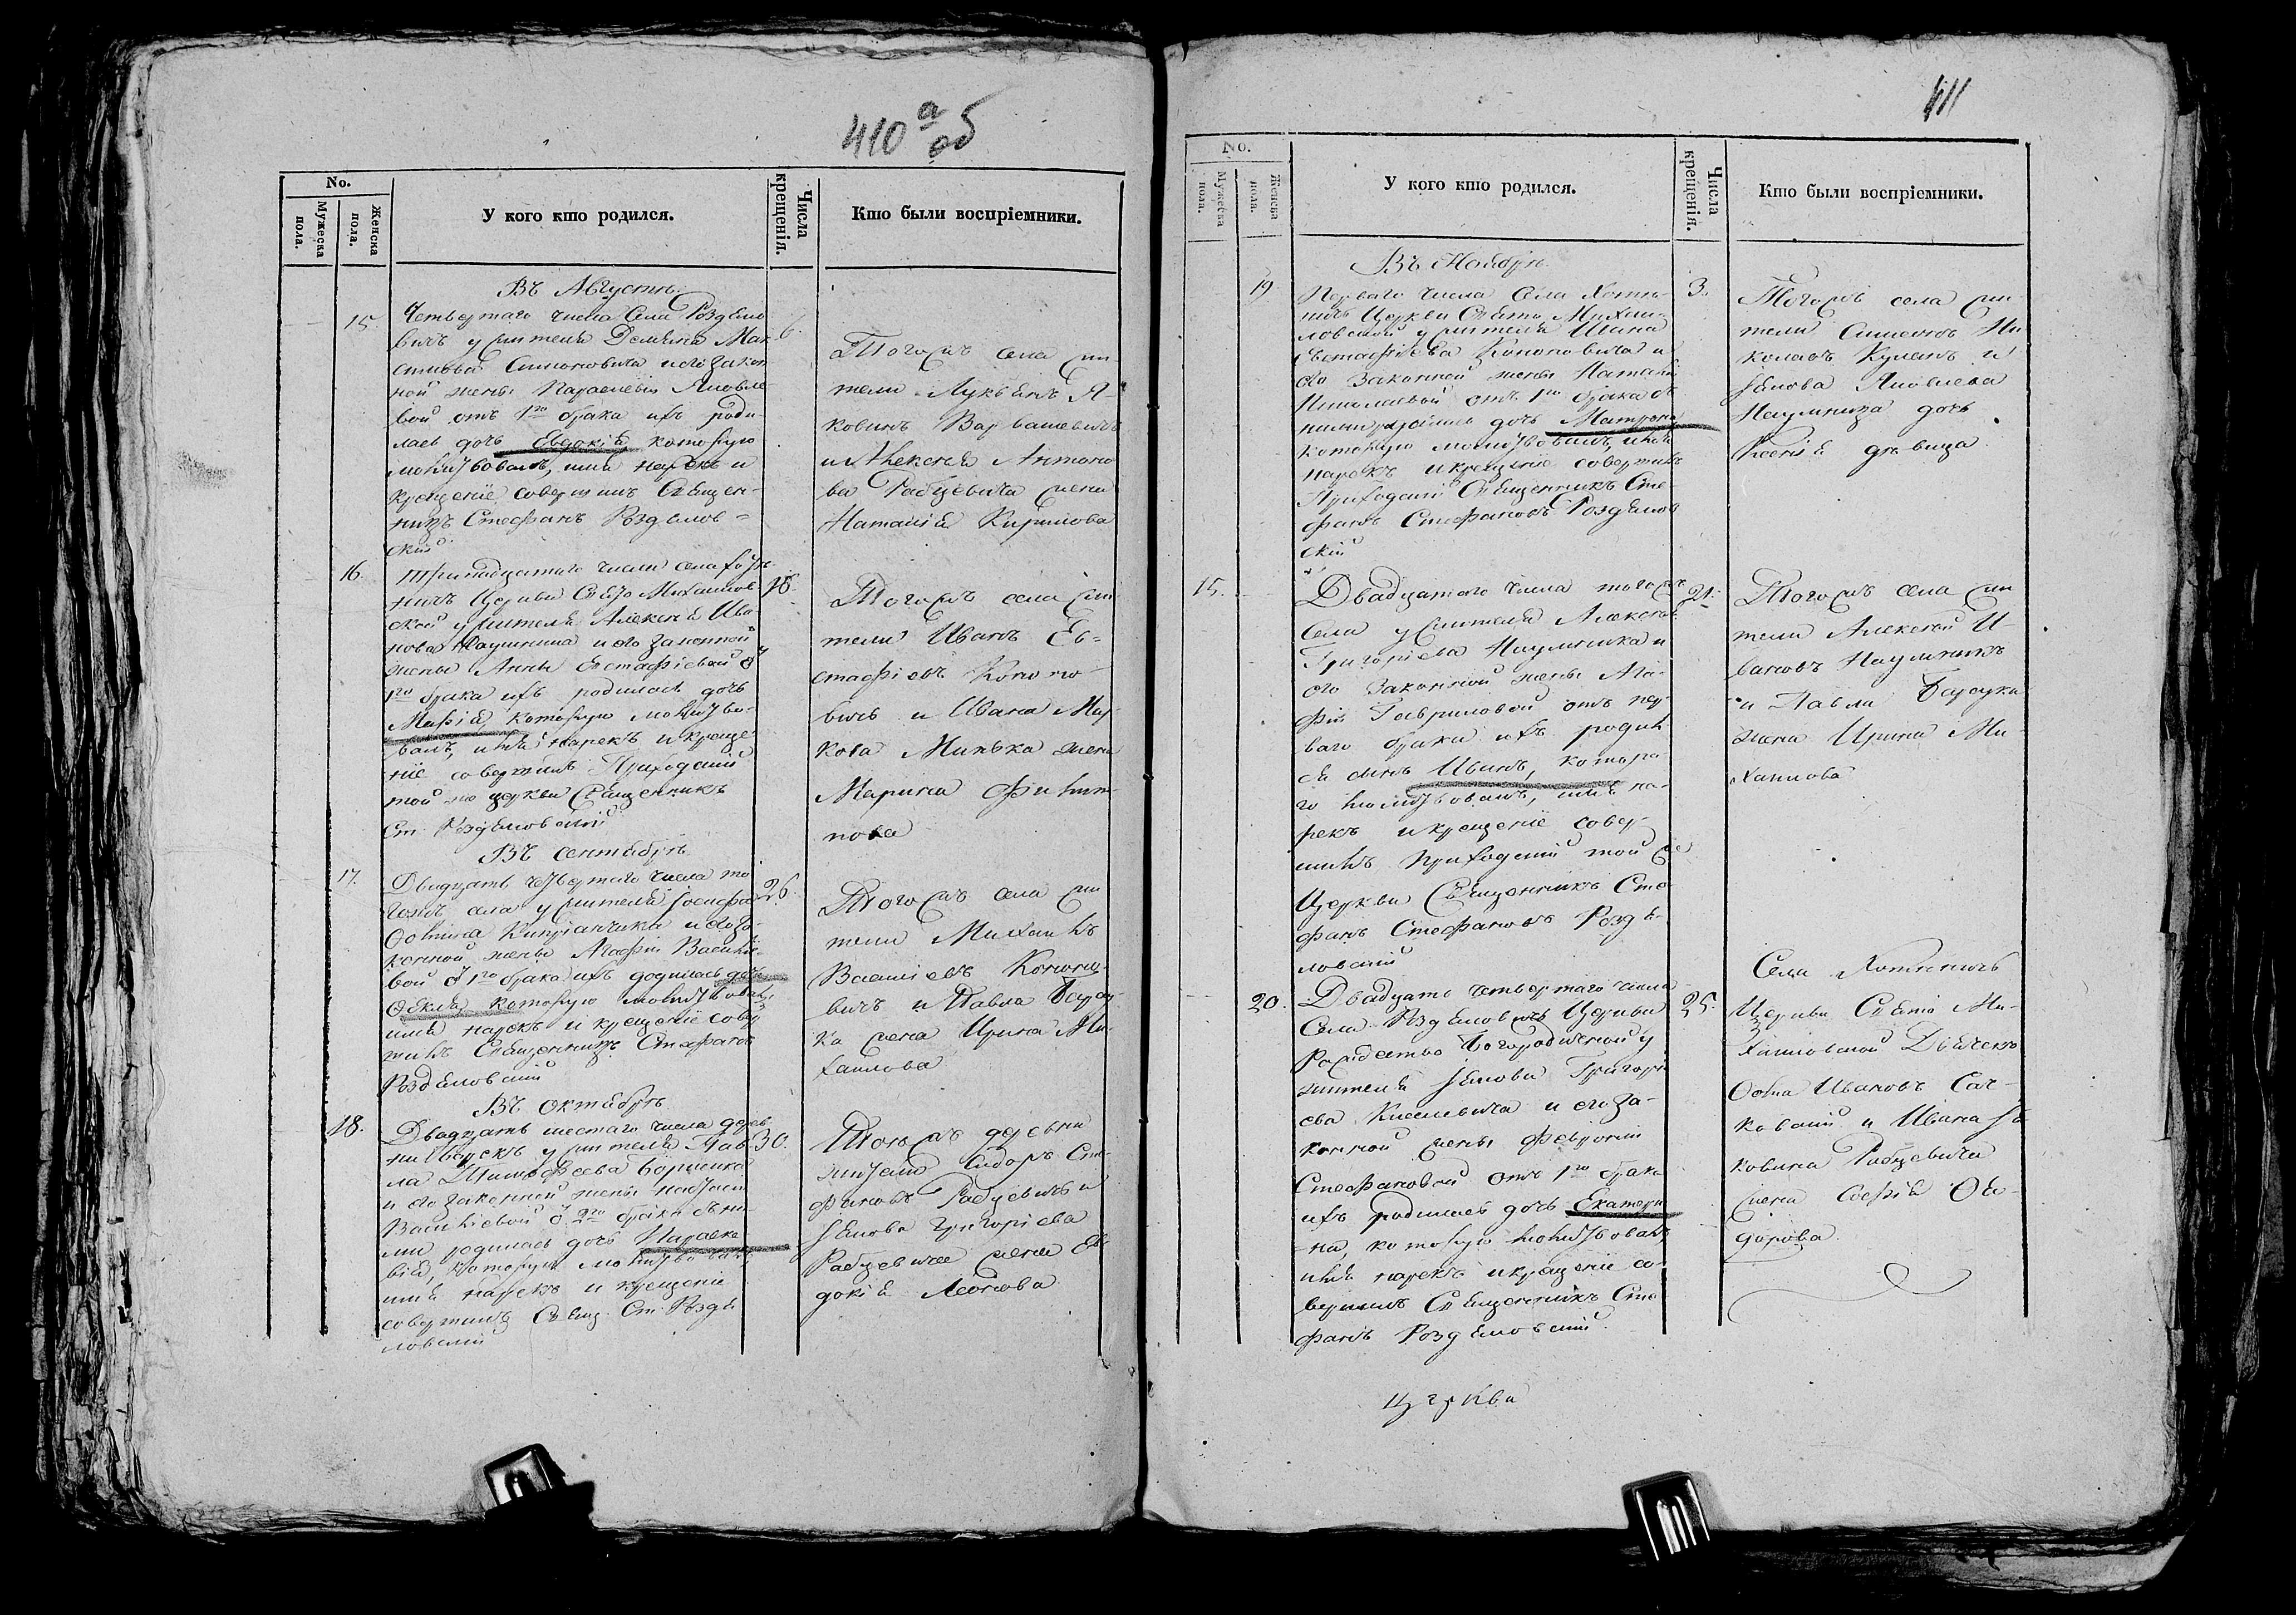 410 а об
No.
Мужеска пола.
Женска пола.
У кого кто родился.
Числа крещенія.
Кто были воспріемники.
Въ Августѣ.
15.
Четвертаго числа Села Роздѣло
вичъ у жителя
Симоновича и его закон
ной жены Параскевіи Яковле
вой отъ 1го брака ихъ роди
лась дочь Евдокія которую
молитвовалъ, имя нарекъ и
крещеніе совершилъ Священ-
никъ Стефанъ Роздѣлов=
скій
6.
Тогожъ села жи
тели Лукьянъ Я-
ковинъ
и Алексѣя Антоно
ва Рабцевича жена
Наталія Кирилова
16.
Тринадцатаго числа села
Церкви Свято Михайлов
ской у жителя Алексѣя Ива
нова Наумчика и его законной
жены Анны Евстафіевой отъ
1го брака ихъ родилась дочь
Марія, которую молитво-
валъ, имя нарекъ и креще
ніе совершилъ Приходскій
той же церкви Священникъ
Ст. Роздѣловскій
Тогожъ села жи
тели Иванъ Ев-
стафіевъ Кононо
вичъ и Ивана
кова Минька жена
Марина Филип
пова
Въ Сентябрѣ
17.
Двадцать четвертаго числа то
гожъ села у жителя Іосифа
Фомина и его за-
конной жены Агафіи Василіе-
вой отъ 1го брака ихъ родилась дочь
Ѳекла, которую молитвовалъ,
имя нарекъ и крещеніе совер
шилъ Священникъ Стефанъ
Роздѣловскій
26.
Тогожъ села жи
тели Михаилъ
Василіевъ Кононо-
вичъ и Павла Барсу
ка жена Ирина Ми-
хаилова
Въ Октябрѣ
18.
Двадцать шестаго числа дерев
ни Борокъ у жителя Пав
ла Тимофеева
и его законной жены
Василіевой отъ 2го брака съ ни-
ми родилась дочь Параске
вія, которую молитвовалъ,
имя нарекъ и крещеніе
совершилъ Свящ. Ст. Роздѣ
ловскій
30.
Тоежъ деревни
жители Сидоръ Сте
фановъ Рабцевичъ и
Якова Григоріева
Рабцевича жена Ев
докія Леонова
411
No.
Мужеска пола.
Женска пола.
У кого кто родился.
Числа крещенія.
Кто были воспріемники.
Въ Ноябрѣ
19.
Перваго числа Села Хоты-
ничъ Церкви Свято Михаи-
ловской у жителя Ивана
Евстафіева Кононовича и
его законной жены Наталіи
отъ 1го брака съ
ними родилась дочь Матрона
которую молитвовалъ, имя
нарекъ и крещеніе совершилъ
Приходскій Священникъ Сте-
фанъ Стефановъ Роздѣлов
скій
3.
Тогожъ села жи
тели Симеонъ Ни
колаевъ и
Якова Яковлева
Наумчика дочь
Ксенія дѣвица
15.
Двадцатаго числа тогожъ
Села у жителя Алексѣя
Григоріева Наумчика и
его законной жены Ага-
фіи Гавриловой отъ пер
ваго брака ихъ родил
ся сынъ Иванъ, которо
го молитвовалъ, имя на-
рекъ и крещеніе совер-
шилъ Приходскій той же
Церкви Священникъ Сте
фанъ Стефановъ Роздѣ-
ловскій
21.
Тогожъ села жи
тели Алексѣй И-
вановъ Наумчикъ
и Павла Барсука
жена Ирина Ми-
хаилова
20.
Двадцать четвертаго числа
Села Роздѣловичъ Церкви
Рождество Богородичной у
жителя Якова Григорі
ева Киселевича и его за-
конной жены Февроніи
Стефановой отъ 1го брака
ихъ родилась дочь Екатери
на, которую молитвовалъ,
имя нарекъ и крещеніе со-
вершилъ Священникъ Сте
фанъ Роздѣловскій.
25.
Села Хотыничъ
Церкви Свято Ми-
хаиловской Дьячекъ
Фома Ивановъ Сач-
ковскій и Ивана Я-
ковина Рабцевича
жена Софія Ѳео-
дорова.
церкви